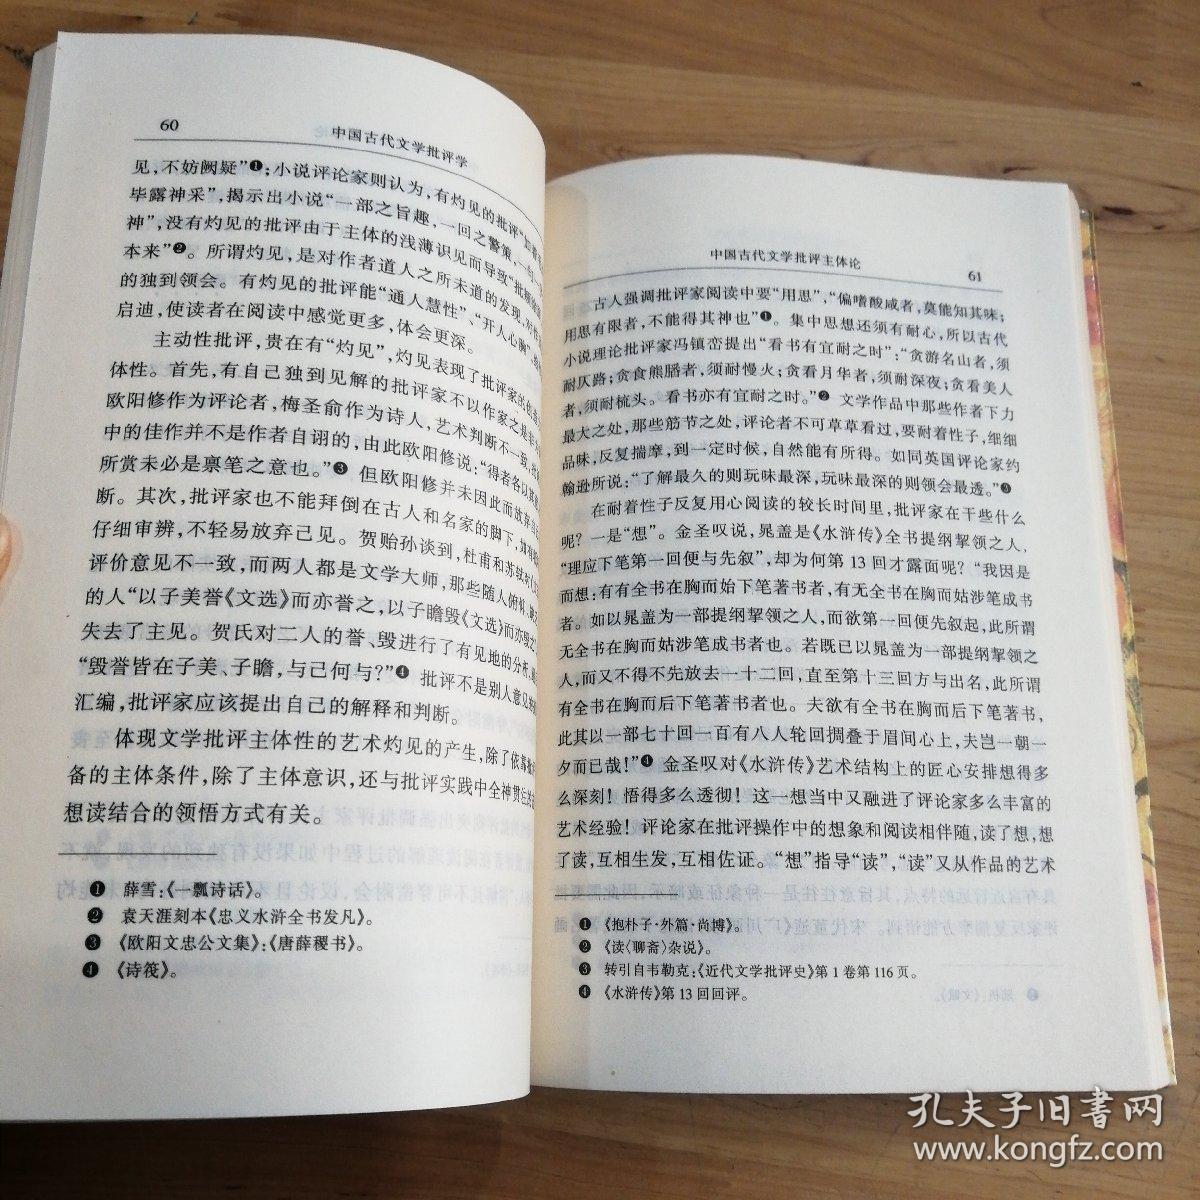 60
中国古代文学批评学
见,不妨阙疑”❶;小说评论家则认为,有灼见的批评“
毕露神采”,揭示出小说“一部之旨趣,一回之警策,
神”,没有灼见的批评由于主体的浅薄识见而导致“批
本来”❷。所谓灼见,是对作者道人之所未道的发现,
的独到领会。有灼见的批评能“通人慧性”、“开人心
启迪,使读者在阅读中感觉更多,体会更深。
主动性批评,贵在有“灼见”,灼见表现了批评家的
体性。首先,有自己独到见解的批评家不以作家之是
欧阳修作为评论者,梅圣俞作为诗人,艺术判断不一致,
中的佳作并不是作者自诩的,由此欧阳修说:“得者名以其
所赏未必是禀笔之意也。”❸ 但欧阳修并未因此而放弃
断。其次,批评家也不能拜倒在古人和名家的脚下,
仔细审辨,不轻易放弃己见。贺贻孙谈到,杜甫和苏轼对《文
评价意见不一致,而两人都是文学大师,那些随人俯仰、
的人“以子美誉《文选》而亦誉之,以子瞻毁《文选》而亦毁之”,
失去了主见。贺氏对二人的誉、毁进行了有见地的分析,
“毁誉皆在子美、子瞻,与己何与?”❹ 批评不是别人意见
汇编,批评家应该提出自己的解释和判断。
体现文学批评主体性的艺术灼见的产生,除了依靠
备的主体条件,除了主体意识,还与批评实践中全神贯注
想读结合的领悟方式有关。
❶ 薛雪:《一瓢诗话》。
❷ 袁无涯刻本《忠义水浒全书发凡》。
❸ 《欧阳文忠公文集》:《唐薛稷书》。
❹ 《诗筏》。
中国古代文学批评主体论
61
古人强调批评家阅读中要“用思”,“偏嗜酸咸者,莫能知其味;
用思有限者,不能得其神也”❶。集中思想还须有耐心,所以古代
小说理论批评家冯镇峦提出“看书有宜耐之时”:“贪游名山者,须
耐仄路;贪食熊膰者,须耐慢火;贪看月华者,须耐深夜;贪看美人
者,须耐梳头。看书亦有宜耐之时。”❷ 文学作品中那些作者下力
最大之处,那些筋节之处,评论者不可草草看过,要耐着性子,细细
品味,反复揣摩,到一定时候,自然能有所得。如同英国评论家约
翰逊所说:“了解最久的则玩味最深,玩味最深的则领会最透。”❸
在耐着性子反复用心阅读的较长时间里,批评家在干些什么
呢? 一是“想”。金圣叹说,晁盖是《水浒传》全书提纲挈领之人,
“理应下笔第一回便与先叙”,却为何第 13 回才露面呢? “我因是
而想:有有全书在胸而始下笔著书者,有无全书在胸而姑涉笔成书
者。如以晁盖为一部提纲挈领之人,而欲第一回便先叙起,此所谓
无全书在胸而姑涉笔成书者也。若既已以晁盖为一部提纲挈领之
人,而又不得不先放去一十二回,直至第十三回方与出名,此所谓
有全书在胸而后下笔著书者也。夫欲有全书在胸而后下笔著书,
此其以一部七十回一百有八人轮回捆叠于眉间心上,夫岂一朝一
夕而已哉!”❹ 金圣叹对《水浒传》艺术结构上的匠心安排想得多
么深刻! 悟得多么透彻! 这一想当中又融进了评论家多么丰富的
艺术经验! 评论家在批评操作中的想象和阅读相伴随,读了想,想
了读,互相生发,互相佐证。“想”指导“读”,“读”又从作品的艺术
❶ 《抱朴子·外篇·尚博》。
❷ 《读〈聊斋〉杂说》。
❸ 转引自韦勒克:《近代文学批评史》第 1 卷第 116 页。
❹ 《水浒传》第 13 回回评。
孔夫子旧书网
www.kongfz.com